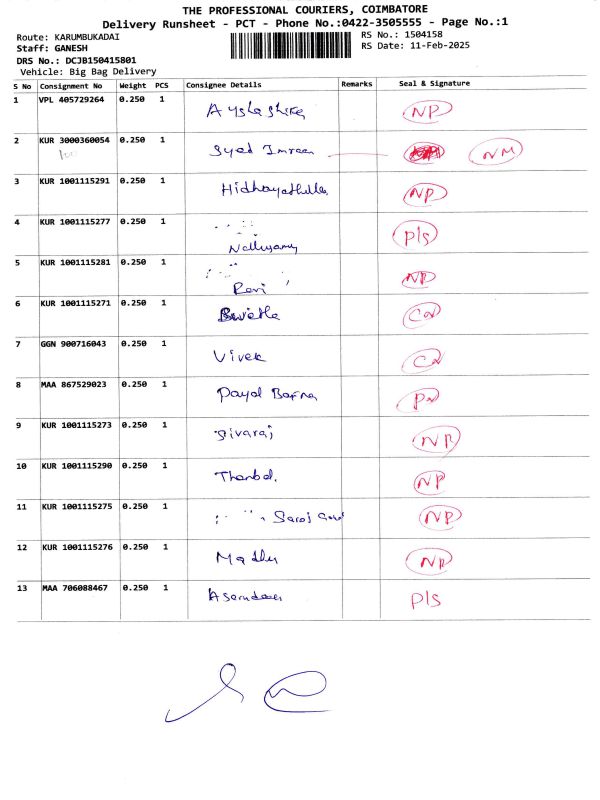 THE PROFESSIONAL COURIERS, COIMBATORE
Delivery Runsheet - PCT - Phone No.:0422-3505555 - Page No.:1
Route: KARUMBUKADAI RS No.: 1504158
Staff: GANESH RS Date: 11-Feb-2025
DRS No.: DCJB150415801
Vehicle: Big Bag Delivery
S No Consignment No Weight PCS Consignee Details Remarks Seal & Signature
1 VPL 405729264 0.250 1 NP
2 KUR 3000360054 0.250 1 Syed Imraan NM
100
3 KUR 1001115291 0.250 1 Hidhayathulla NP
4 KUR 1001115277 0.250 1 P/s
Nallusamy
5 KUR 1001115281 0.250 1 NP
Ravi
6 KUR 1001115271 0.250 1
7 GGN 900716043 0.250 1 Vivek
8 MAA 867529023 0.250 1 Payal
9 KUR 1001115273 0.250 1 Sivaraj NP
10 KUR 1001115290 0.250 1 NP
11 KUR 1001115275 0.250 1 Saroj NP
12 KUR 1001115276 0.250 1 Madhu NP
13 MAA 706088467 0.250 1 P/s